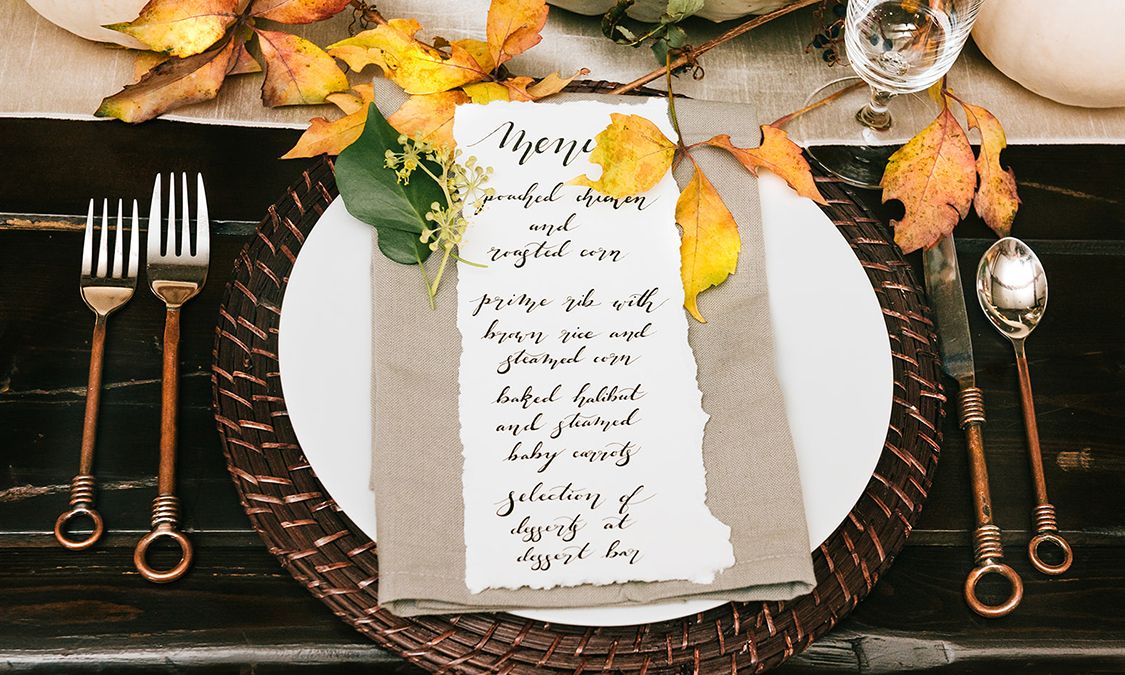 Menu
poached chicken
and
roasted corn
prime rib with
brown rice and
steamed corn
baked halibut
and steamed
baby carrots
selection of
desserts at
dessert bar